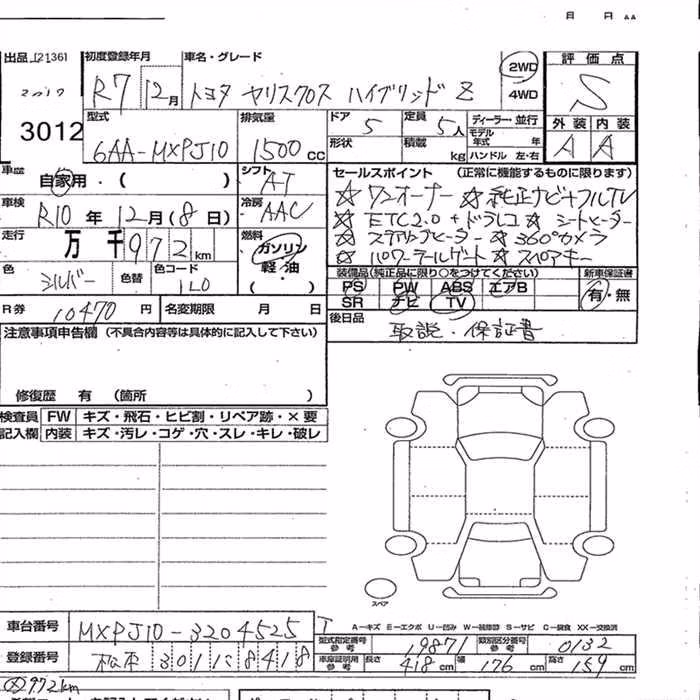 月 日 AA
出品 初度登録年月 車名・グレード 評価点
R7 12月 トヨタ ヤリスクロス ハイブリッド Z 2WD 4WD S
3012 型式 排気量 ドア 定員 ディーラー・並行 外装 内装
6AA-MXPJ10 1500cc 5 5人 モデル年式 年 A A
形状 積載 kg ハンドル 左・右
車歴 自家用・( ) シフト AT セールスポイント (正常に機能するものに限ります)
☆ワンオーナー ☆純正ナビ+フルTV
車検 R10年12月(8日) 冷房 AAC ☆ETC2.0+ドラレコ ☆シートヒーター
走行 万千972km 燃料 ガソリン 軽油・( ) ☆ステアリングヒーター ☆360°カメラ
☆パワーテールゲート ☆スペアキー
色 シルバー 色替 色コード 1L0 装備品(純正品に限り○をつけてください) 新車保証書
PS PW ABS エアB 有・無
SR ナビ TV
R券 10470円 名変期限 月 日 後日品
取説・保証書
注意事項申告欄 (不具合内容等は具体的に記入して下さい)
修復歴 有 (箇所 )
検査員 FW キズ・飛石・ヒビ割・リペア跡・×要
記入欄 内装 キズ・汚レ・コゲ・穴・スレ・キレ・破レ
スペア
A－キズ E－エクボ U－凹み W－補修跡 S－サビ C－腐食 XX－交換済
車台番号 MXPJ10-3204525 型式指定番号 参考 19871 類別区分番号 参考 0132
登録番号 松本 301 8418 車庫証明用 参考 長さ 418cm 幅 176cm 高さ 159cm
972km